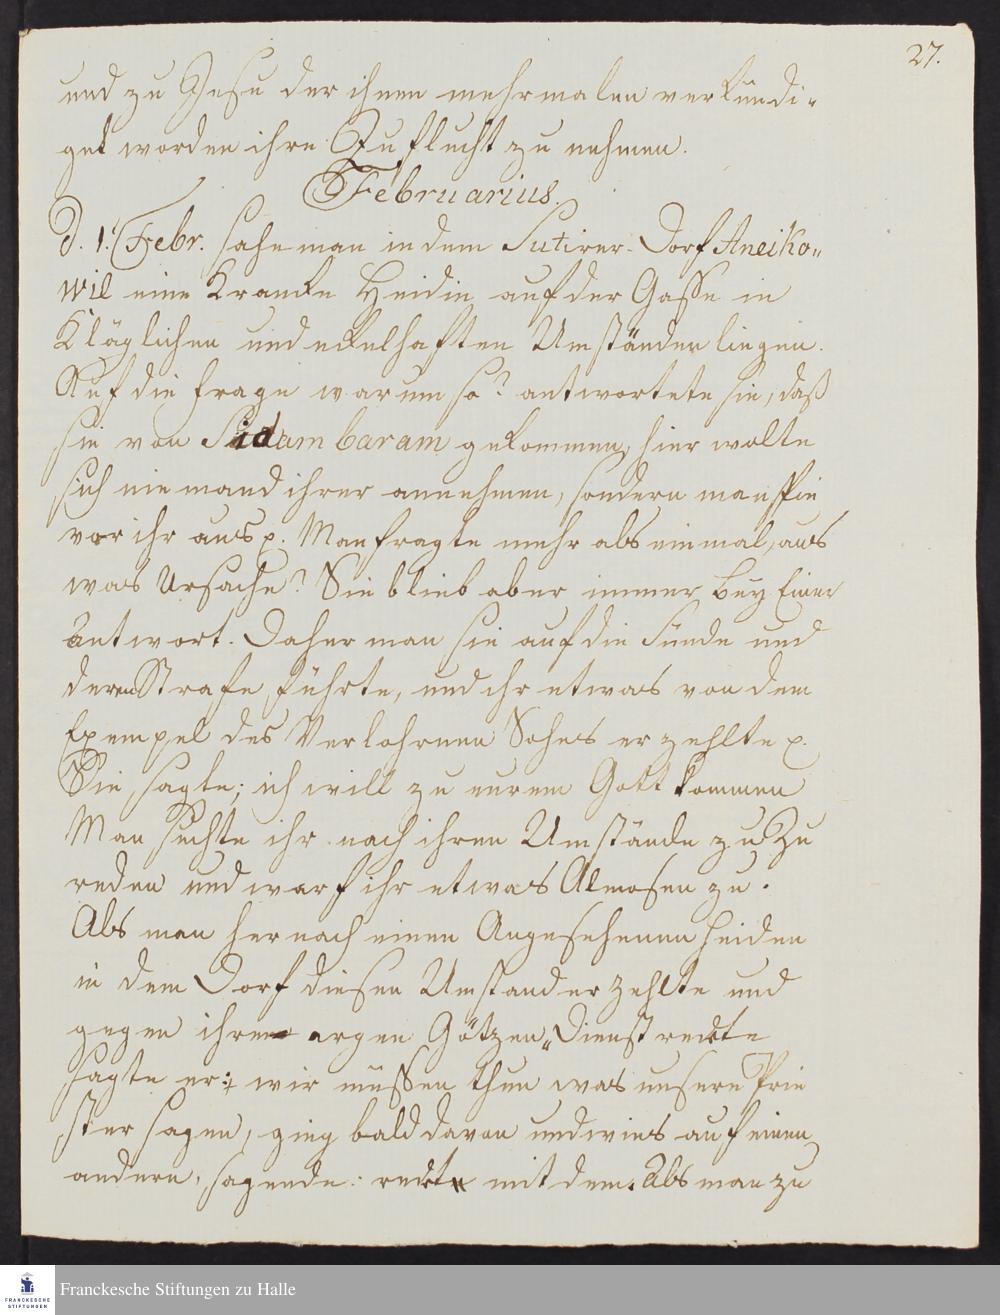 27.
und zu Jesu der ihnen mehrmalen verkündi-
get worden ihre Zuflucht zu nehmen.
Februarius.
d. 1. Febr. sahe man in dem Sutirer-Dorf Aneiko-
wil eine Krancke Heidin auf der Gasse in
Kläglichen und eckelhaften Umständen liegen.
Auf die frage warum so? antwortete sie, daß
sie von Sidambaram gekommen, hier wolte
sich niemand ihrer annehmen, sondern man spie
vor ihr aus p. Man fragte mehr als einmal, aus
was Ursache? Sie blieb aber immer bey Einer
Antwort. Daher man sie auf die Sünde und
deren Strafe führte, und ihr etwas von dem
Exempel des Verlohrnen Sohns erzehlte p.
Sie sagte; ich will zu eurem Gott kommen
Man suchte ihr nach ihren Umstände zu Zu
reden und warf ihr etwas Almosen zu.
Als man hernach einen Angesehenen Heiden
in dem Dorf diesen Umstand erzehlte und
gegen ihren argen Götzen-Dienst redete
sagte er: wir müssen thun was unsere Prie
ster sagen, ging bald davon und wies auf einen
andern, sagende: redet mit dem. Als man zu
Franckesche Stiftungen zu Halle
FRANCKESCHE
STIFTUNGEN